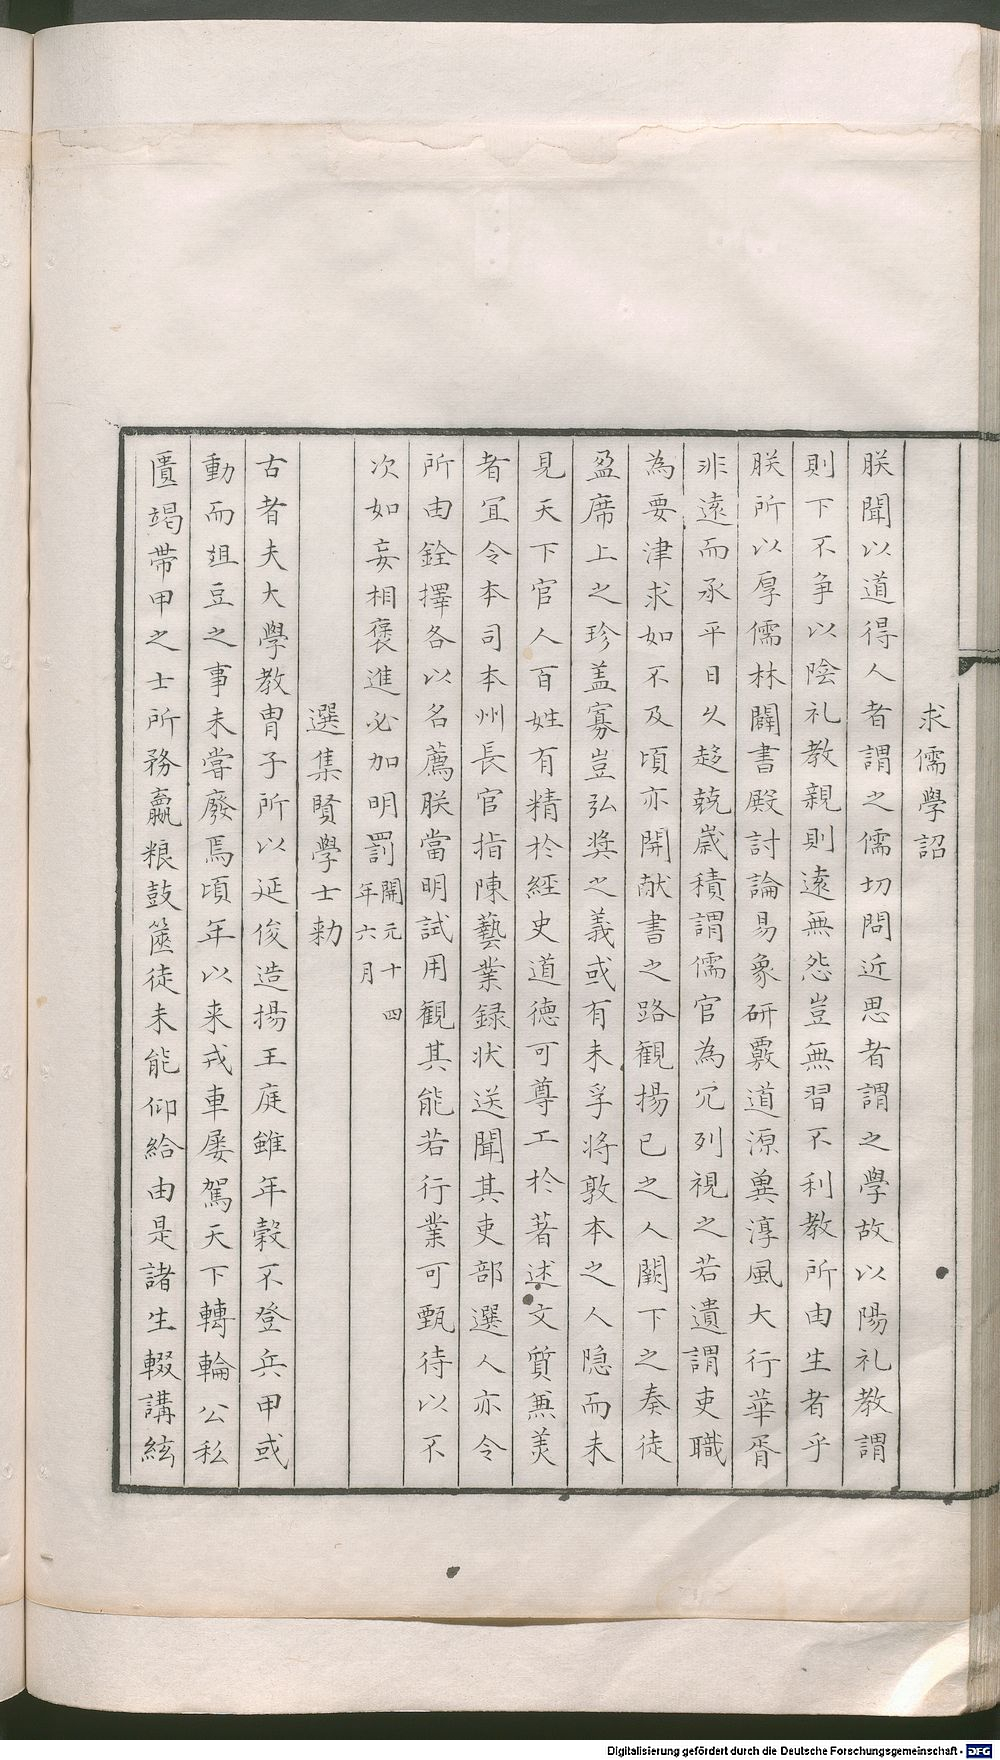 求儒學詔
朕聞以道得人者謂之儒切問近思者謂之學故以陽礼教謂
則下不争以陰礼教親則遠無怨豈無習不利教所由生者乎
朕所以厚儒林闢書殿討論易象研覈道源兾淳風大行華胥
非遠而承平日久趍競嵗積謂儒官為冗列視之若遺謂吏職
為要津求如不及頃亦開献書之路觀揚已之人闕下之奏徒
盈席上之珍盖寡豈弘奨之義或有未孚将敦本之人隠而未
見天下官人百姓有精扵經史道徳可尊工扵著述文質兼美
者宜令本司本州長官指陳藝業録状送聞其吏部選人亦令
所由銓擇各以名薦朕當明試用觀其能若行業可甄待以不
次如妄相褒進必加明罰開元十四年六月
選集賢學士勑
古者夫大學教胄子所以延俊造揚王庭雖年糓不登兵甲或
動而俎豆之事未嘗廢焉頃年以来戎車屡駕天下轉輪公私
匱竭帶甲之士所務贏粮鼓篋徒未能仰給由是諸生輟講絃
Digitalisierung gefördert durch die Deutsche Forschungsgemeinschaft - DFG